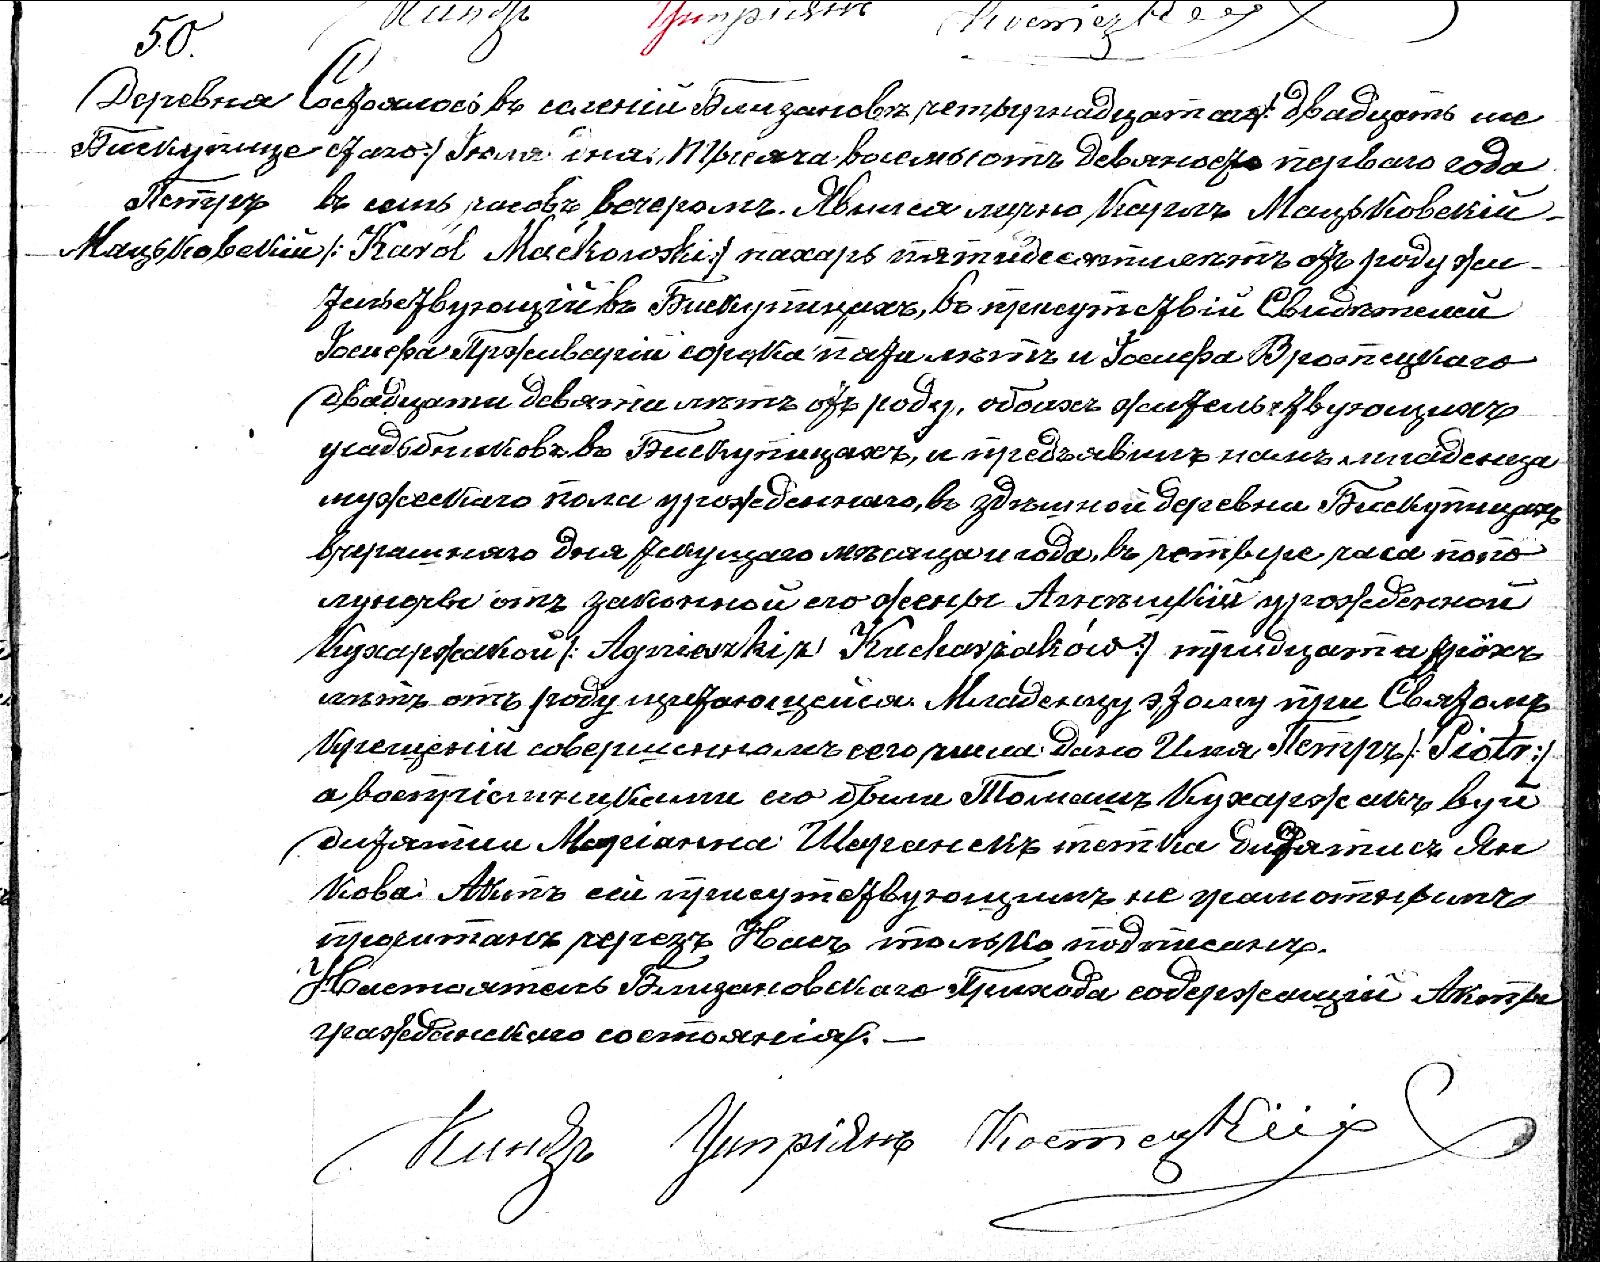 Киндзъ Циприянъ Костецкій
50.
Деревня
Бискупице
Петръ
Мацьковскій
Состоялось въ селеній Близановѣ четырнадцатаго /: двадцать ше
стаго :/ Іюля дня, тысяча восемьсотъ девяносто перваго года
въ семь часовъ вечеромъ. Явился лично Кароль Мацьковскій
/: Karól Maćkowski :/ пахарь пятидесяти лѣтъ отъ роду жи-
тельствующій въ Бискупицахъ, въ присутствіи Свидѣтелей
Іосифа сорока пяти лѣтъ и Іосифа Вротецкаго
двадцати девяти лѣтъ отъ роду, обоихъ жительствующихъ
усадьбниковъ въ Бискупицахъ, и предъявилъ намъ младенца
мужескаго пола урожденнаго, въ здѣшной деревни Бискупицахъ
вчерашняго дня текущаго мѣсяца и года, въ четыре часа попо
луночи отъ законной его жены Агнѣшкій урожденной
Кухаржаковой /: Agnieszki z Kucharzaków :/ тридцати трёхъ
лѣтъ отъ роду щитающейся. Младенцу этому при Святомъ
Крещеній совершенномъ сего числа дано Имя Петръ /: Piotr :/
а воспріемниками его были Томашъ Кухаржакъ вуй
дитятии Маріанна Шаранекъ тетка дитятись Ян
кова. Актъ сей присутствующимъ не грамотнымъ
прочитанъ черезъ Насъ только подписанъ.
Настоятель Близановскаго Прихода содержащій Акты
гражданскаго состоянія. —
Киндзъ Циприянъ Костецкій